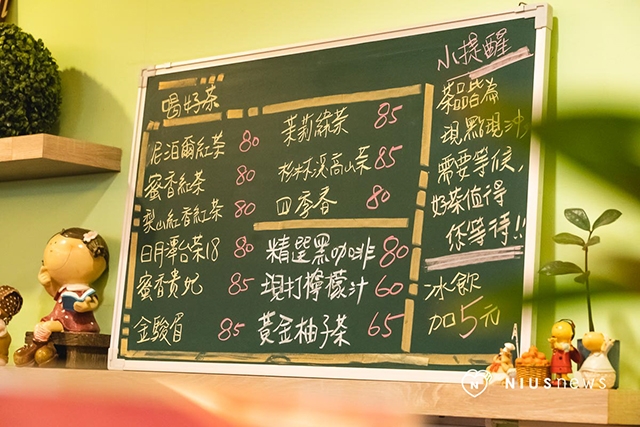 喝好茶
尼泊爾紅茶 80
蜜香紅茶 80
梨山紅香紅茶 80
日月潭台茶18 80
蜜香貴妃 85
金駿眉 85
茉莉綠茶 85
杉林溪高山茶 85
四季春 80
精選黑咖啡 80
現打檸檬汁 60
黃金柚子茶 65
小提醒
茶品皆為
現點現沖
需要等候,
好茶值得
你等待!!
冰飲
加5元
NIUSnews